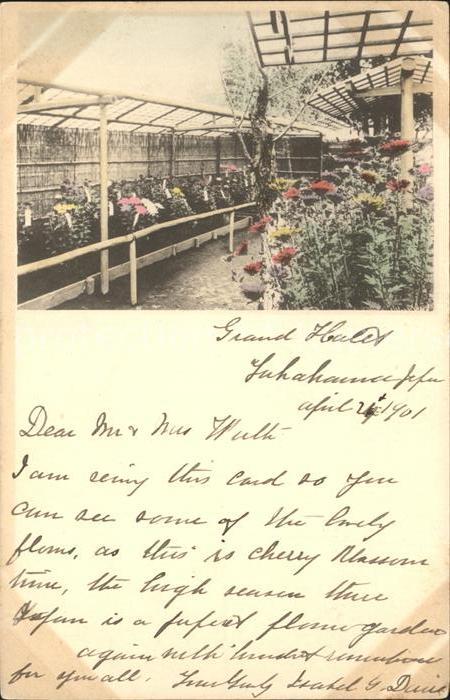 Grand Hotel
Yokohama Japan
april 21 1901
Dear Mr & Mrs
I am seing this card so you
can see some of the lovely
flows, as this is cherry Blossom
time, the high season there
Japan is a perfect flower garden
again with kindest
for you all. Isabel G.